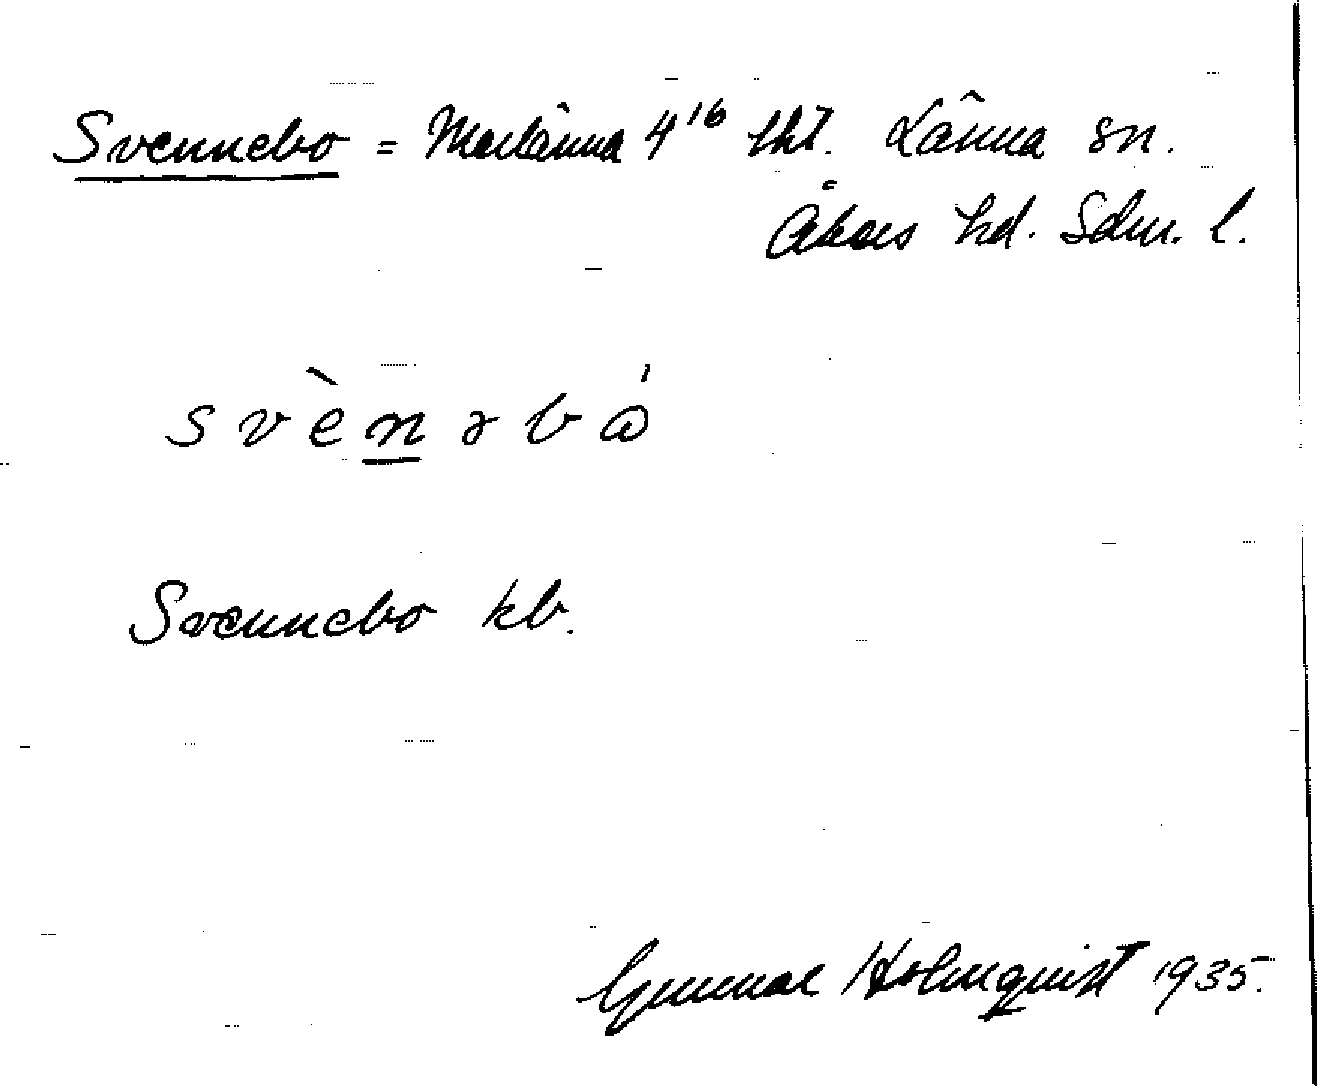 Svennebo = Marlänna 4¹⁶ tkt. Länna sn.
Åkers hd. Sdm. l.
s v è n ə b ώ
Svennebo kb.
Gunnar Holmquist 1935.